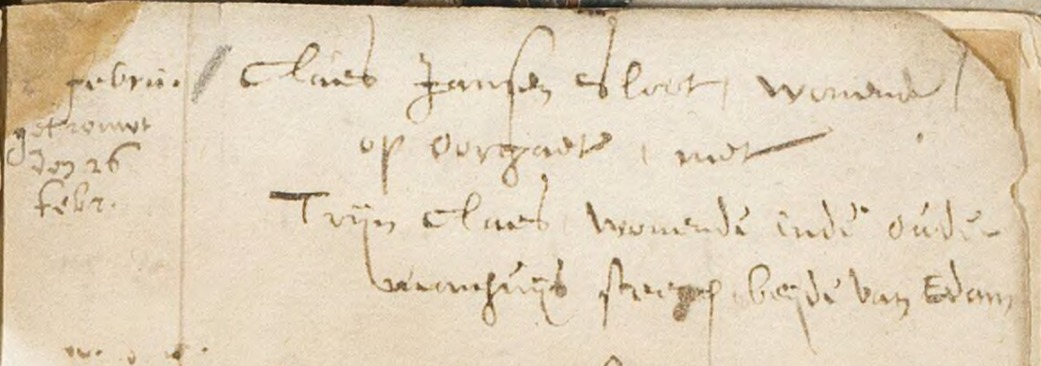 febru.
getrouwt
den 26
febr.
Claes Jansen Sloot, wonende
op oorgaet, met
Trijn Claes wonende inde oude
steegh, beyde van Edam